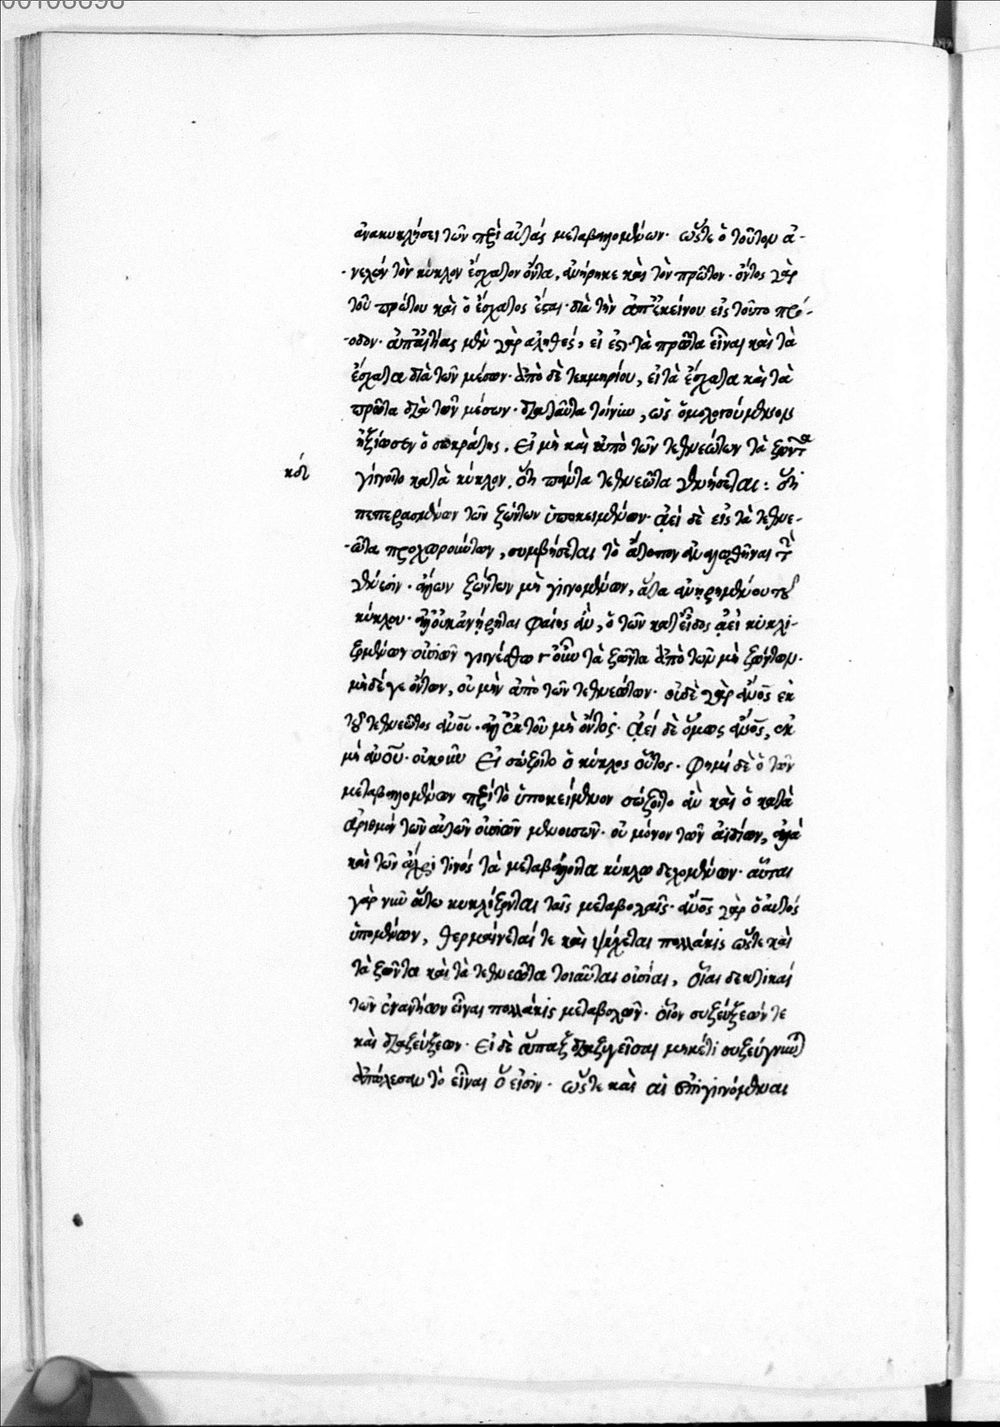 00108898
ἀνακυκλήσει τῶν περὶ αὐτάς μεταβαλλομένων· ὥστε ὁ τοῦτον ἀ-
-νελὼν τὸν κύκλον ἔσχατον ὄντα, ἀνήρηκε καὶ τὸν πρῶτον· ὄντος γὰρ
τοῦ πρώτου καὶ ὁ ἔσχατος ἔσται· διὰ τὴν ἀπ' ἐκείνου εἰς τοῦτο πρό-
-οδον· ἀπ' αἰτίας μὲν γὰρ ἀληθές, εἰ ἔστι τὰ πρῶτα εἶναι καὶ τὰ
ἔσχατα διὰ τῶν μέσων· ἀπὸ δὲ τεκμηρίου, εἰ τὰ ἔσχατα καὶ τὰ
πρῶτα διὰ τῶν μέσων· διὰ ταῦτα τοίνυν, ὡς ὁμολογούμενον
ἠξίωσεν ὁ σωκράτης. Εἰ μὴ καὶ ἀπὸ τῶν τεθνεώτων τὰ ζῶντα
γίνοιτο κατὰ κύκλον, ὅτι πάντα τεθνεῶτα γενήσεται: ὅτι
πεπερασμένων τῶν ζώντων ὑποκειμένων· ἀεί δὲ εἰς τὰ τεθνε-
-ῶτα προχωρούντων, συμβήσεται τὸ ἄτοπον ἀναιρεθῆναι τὴν
γένεσιν· ἄλλων ζώντων μὴ γινομένων, ἅτε ἀνῃρημένου τοῦ
κύκλου· ἀλλ' οὐκ ἀνῄρηται φαίης ἂν, ὁ τῶν κατ' εἶδος ἀεὶ κυκλι-
ζομένων οὐσιῶν γινέσθω γοῦν τὰ ζῶντα ἀπὸ τῶν μὴ ζώντων·
μηδέ γε ὄντων, οὐ μὴν ἀπὸ τῶν τεθνεώτων· οὐδὲ γὰρ ἄνθρωπος ἐκ
τοῦ τεθνεῶτος ἀνθρώπου· ἀλλ' ἐκ τοῦ μὴ ὄντος· ἀεί δὲ ὅμως ἄνθρωπος, ἐκ
μὴ ἀνθρώπου· οὐκοῦν Εἰ σώζοιτο ὁ κύκλος οὗτος· φημὶ δὲ ὁ τῶν
μεταβαλλομένων περὶ τὸ ὑποκείμενον σώζοιτο ἂν καὶ ὁ κατὰ
ἀριθμὸν τῶν αὐτῶν οὐσιῶν μενουσῶν· οὐ μόνον τῶν ἀϊδίων, ἀλλὰ
καὶ τῶν ἄχρι τινός τὰ μεταβάλλοντα κύκλω δεχομένων· αὗται
γὰρ νῦν οὕτω κυκλίζονται ταῖς μεταβολαῖς· ἄνθρωπος γὰρ ὁ αὐτός
ὑπομένων, θερμαίνεταί τε καὶ ψύχεται πολλάκις ὥστε καὶ
τὰ ζῶντα καὶ τὰ τεθνεῶτα τοιαῦται οὐσίαι, οἷαι δεκτικαί
τῶν ἐναντίων εἶναι πολλάκις μεταβολῶν· οἷον συζεύξεών τε
καὶ διαζεύξεων· Εἰ δὲ ἅπαξ διαζυγεῖσαι μηκέτι συζεύγνυνται
ἀπώλεσαν τὸ εἶναι ὅ εἰσίν· ὥστε καὶ αἱ ἐπιγινόμεναι